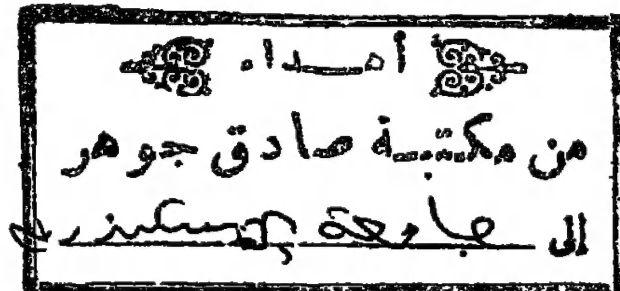 أهـــداء
من مكتبـة صادق جوهر
الى جامعة الإسكندرية